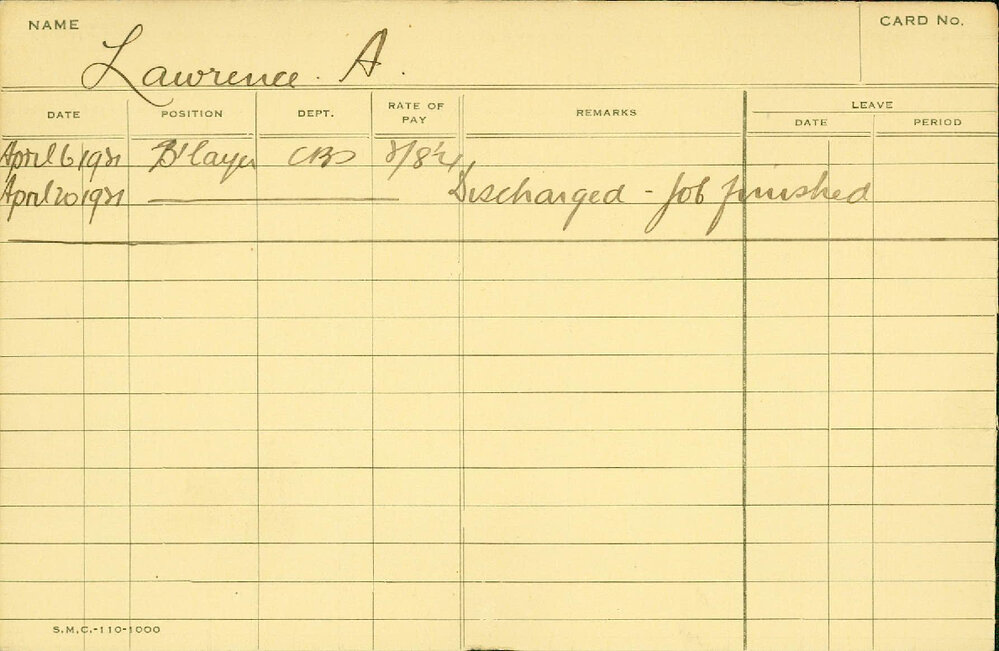 NAME
CARD No.
Lawrence. A.
DATE POSITION DEPT. RATE OF PAY REMARKS LEAVE
DATE PERIOD
April 6 1921 B'layer CBS
April 20 1921 Discharged - Job finished
S.M.C.-110-1000